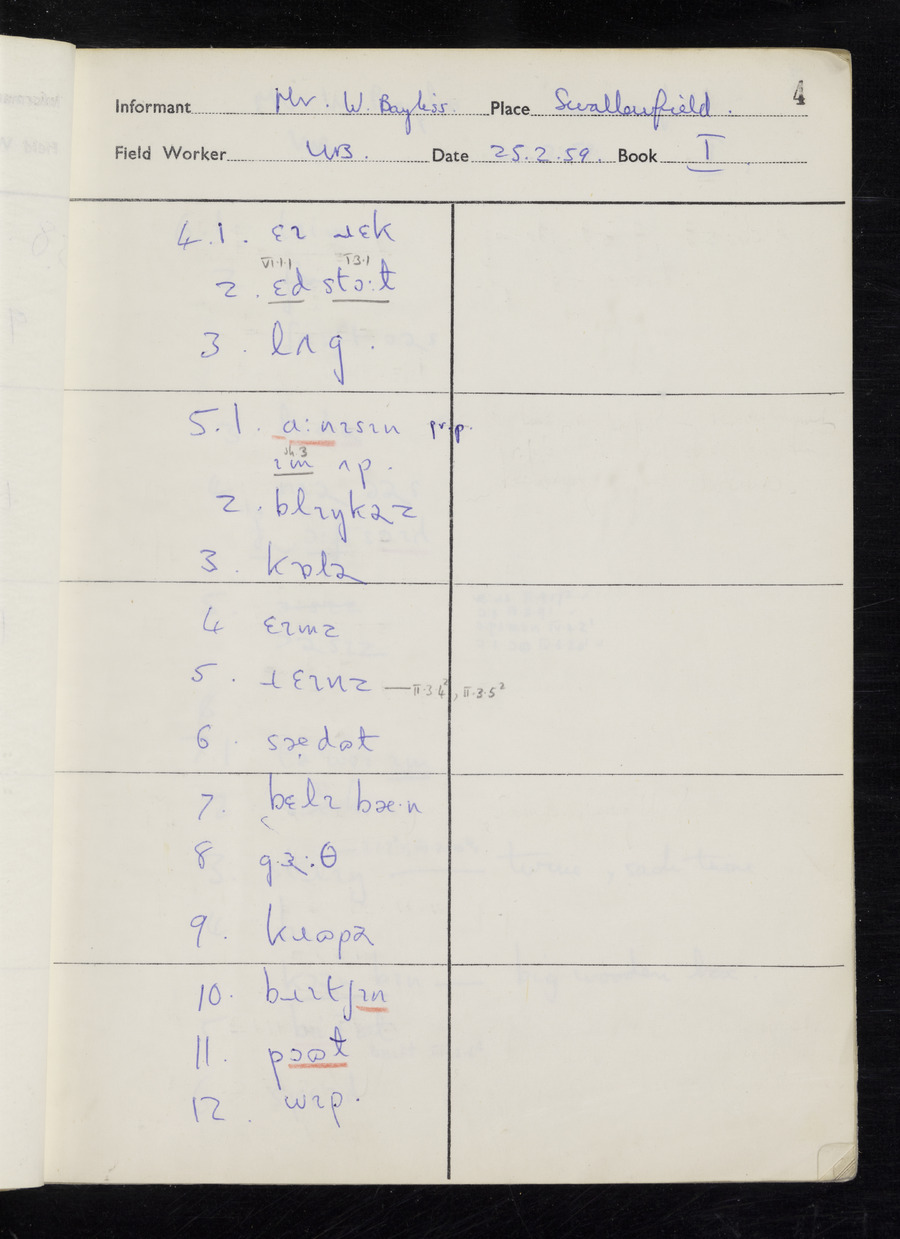 4
Informant Mr. W. Bayliss Place Swallowfield.
Field Worker WB. Date 25.2.59. Book I
4.1. ɛɪ ɹɛk
VI·1·1 I 3·1
2. ɛd stɔ:t
3. lʌg.
5.1. ɑ:nɪsɪn prp.
3
ɪm ʌp.
2. blɪŋkəz
3. kɒlə
4 ɛɪmz
5. ɹɛɪnz — II·3·4², II·3·5²
6. sæ̣dət
7. bɛlɪ bæ·n
8 gɜ:θ
9. kɹɒpə
10. bɹɪtʃɪn
11. pɔət
12. wɪp.